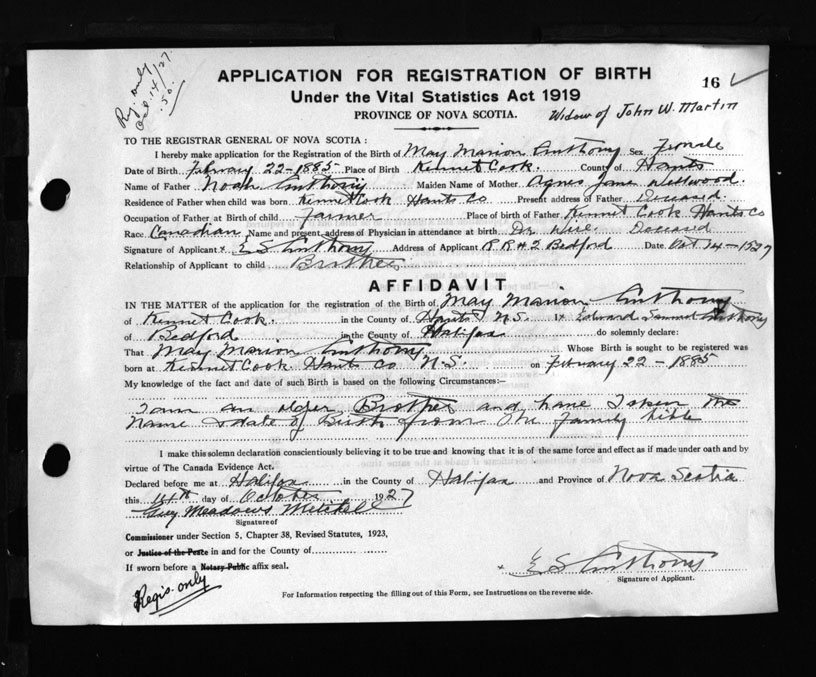 Reg. only
Oct. 14/27.
.50.
APPLICATION FOR REGISTRATION OF BIRTH
16 ✓
Under the Vital Statistics Act 1919
Widow of John W. Martin
PROVINCE OF NOVA SCOTIA.
TO THE REGISTRAR GENERAL OF NOVA SCOTIA :
I hereby make application for the Registration of the Birth of May Marion Anthony Sex Female
Date of Birth February 22-1885 Place of Birth Kennet Cook. County of Hants
Name of Father Noah Anthony Maiden Name of Mother Agnes Jane Wellwood.
Residence of Father when child was born Kennet Cook Hants Co Present address of Father Deceased
Occupation of Father at Birth of child farmer Place of birth of Father Kennet Cook Hants Co
Race Canadian Name and present address of Physician in attendance at birth Dr. Deceased
Signature of Applicant x E S Anthony Address of Applicant R R # 2 Bedford Date Oct 14-1927
Relationship of Applicant to child Brother
AFFIDAVIT
IN THE MATTER of the application for the registration of the Birth of May Marion Anthony
of Kennet Cook. in the County of Hants N.S. I, Edward Samuel Anthony
of Bedford in the County of Halifax do solemnly declare:
That May Marion Anthony Whose Birth is sought to be registered was
born at Kennet Cook Hants Co N.S. on February 22-1885
My knowledge of the fact and date of such Birth is based on the following Circumstances:—
I am an older Brother and have Taken the
Name & date of Birth from The Family bible
I make this solemn declaration conscientiously believing it to be true and knowing that it is of the same force and effect as if made under oath and by
virtue of The Canada Evidence Act.
Declared before me at Halifax in the County of Halifax and Province of Nova Scotia
this 14th day of October 1927
Guy Meadows Mitchell
Signature of
Commissioner under Section 5, Chapter 38, Revised Statutes, 1923,
or Justice of the Peace in and for the County of
If sworn before a Notary Public affix seal.
x E S Anthony
Signature of Applicant.
Regis. only
For Information respecting the filling out of this Form, see Instructions on the reverse side.